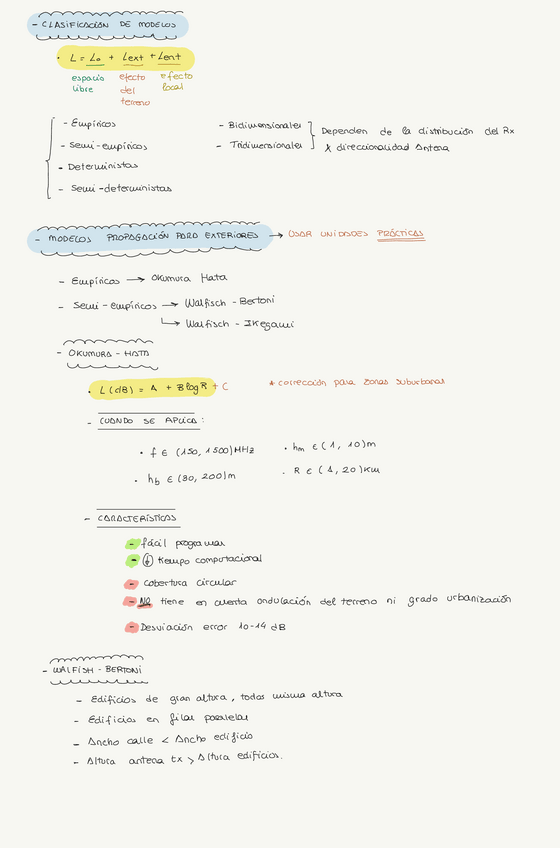 - CLASIFICACIÓN DE MODELOS
· L = Lo + Lext + Lent
espacio libre
efecto del terreno
efecto local
- Empíricos
- Semi-empíricos
- Deterministas
- Semi-deterministas
- Bidimensionales
- Tridimensionales
Dependen de la distribución del Rx
y direccionalidad Antena
- MODELOS PROPAGACIÓN PARA EXTERIORES → USAR UNIDADES PRÁCTICAS
- Empíricos → Okumura Hata
- Semi-empíricos → Walfisch - Bertoni
↳ Walfisch - Ikegami
- OKUMURA - HATA
· L(dB) = A + B log R + C * corrección para zonas suburbanas
- CUANDO SE APLICA:
· f ∈ (150, 1500) MHz · hm ∈ (1, 10) m
· hb ∈ (30, 200) m · R ∈ (1, 20) Km
- CARACTERÍSTICAS
- fácil programar
- (↓) tiempo computacional
- cobertura circular
- NO tiene en cuenta ondulación del terreno ni grado urbanización
- Desviación error 10-14 dB
- WALFISH - BERTONI
- Edificios de gran altura, todos misma altura
- Edificios en filas paralelas
- Ancho calle < Ancho edificio
- Altura antena tx > Altura edificios.